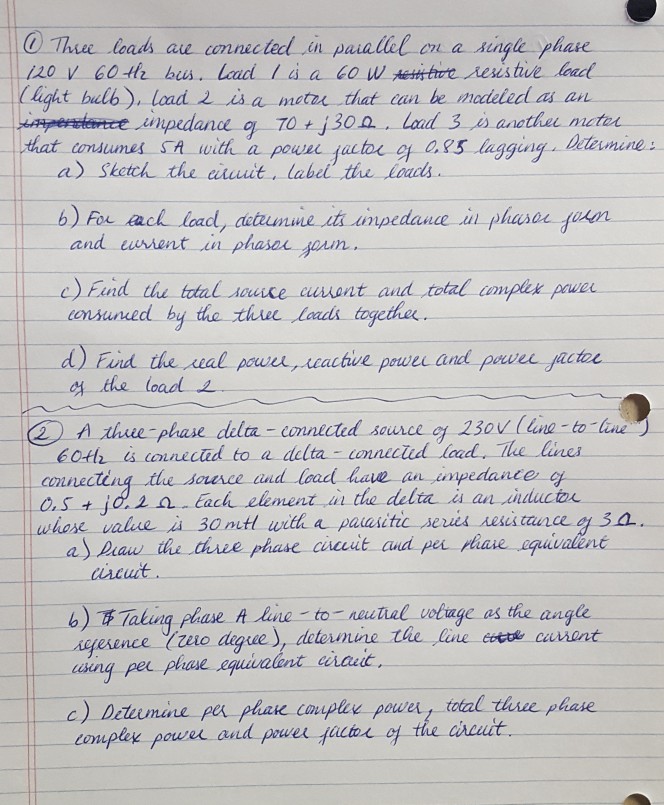 ① Three loads are connected in parallel on a single phase
120 V 60 Hz bus. Load 1 is a 60 W resistive load
(light bulb), load 2 is a motor that can be modeled as an
impedance of 70 + j30Ω. Load 3 is another motor
that consumes 5A with a power factor of 0.85 lagging. Determine:
a) Sketch the circuit, label the loads.
b) For each load, determine its impedance in phasor form
and current in phasor form.
c) Find the total source current and total complex power
consumed by the three loads together.
d) Find the real power, reactive power and power factor
of the load 2
② A three-phase delta-connected source of 230V (line-to-line)
60Hz is connected to a delta-connected load. The lines
connecting the source and load have an impedance of
0.5 + j0.2 Ω. Each element in the delta is an inductor
whose value is 30 mH with a parasitic series resistance of 3Ω.
a) Draw the three phase circuit and per phase equivalent
circuit.
b) Taking phase A line-to-neutral voltage as the angle
reference (zero degree), determine the line current
using per phase equivalent circuit.
c) Determine per phase complex power, total three phase
complex power and power factor of the circuit.